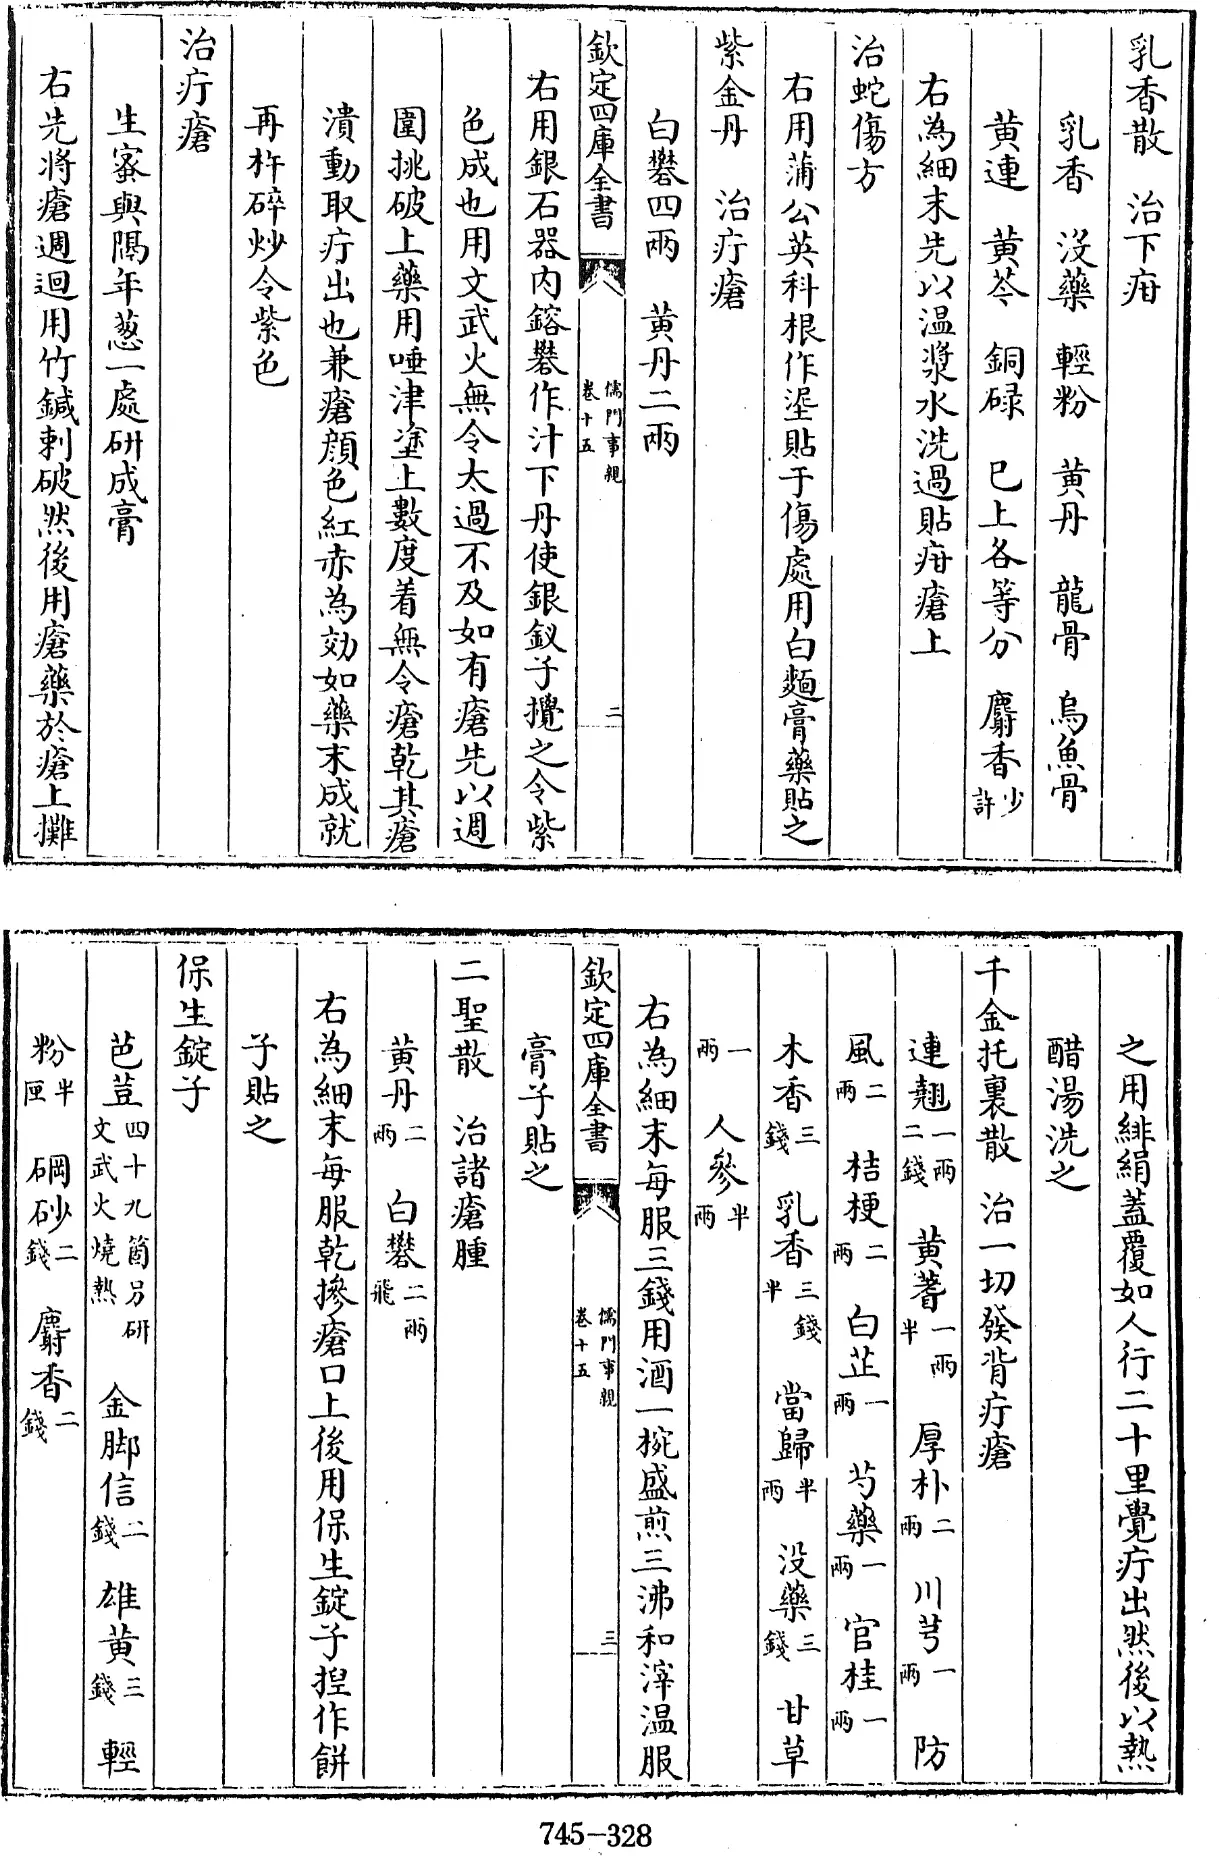 乳香散　治下疳
乳香　沒藥　輕粉　黄丹　龍骨　烏魚骨
黄連　黄芩　銅碌　已上各等分　麝香少許
右為細末先以温漿水洗過貼疳瘡上
治蛇傷方
右用蒲公英科根作埿貼于傷處用白麵膏藥貼之
紫金丹　治疔瘡
白礬四兩　黄丹二兩
欽定四庫全書　儒門事親卷十五　二
右用銀石器内鎔礬作汁下丹使銀釵子攪之令紫
色成也用文武火無令太過不及如有瘡先以週
圍挑破上藥用唾津塗上數度着無令瘡乾其瘡
潰動取疔出也兼瘡顔色紅赤為効如藥末成就
再杵碎炒令紫色
治疔瘡
生蜜與隔年葱一處研成膏
右先將瘡週迴用竹鍼刺破然後用瘡藥於瘡上攤
之用緋絹蓋覆如人行二十里覺疔出然後以熱
醋湯洗之
千金托裏散　治一切發背疔瘡
連翹一兩二錢　黄蓍一兩半　厚朴二兩　川芎一兩　防
風二兩　桔梗二兩　白芷一兩　芍藥一兩　官桂一兩
木香三錢　乳香三錢半　當歸半兩　没藥三錢　甘草
一兩　人參半兩
右為細末每服三錢用酒一椀盛煎三沸和滓温服
欽定四庫全書　儒門事親卷十五　三
膏子貼之
二聖散　治諸瘡腫
黄丹二兩　白礬二兩飛
右為細末每服乾摻瘡口上後用保生錠子揑作餅
子貼之
保生錠子
芭荳四十九箇另研文武火燒熱　金脚信二錢　雄黄三錢　輕
粉半匣　硇砂二錢　麝香二錢
745-328